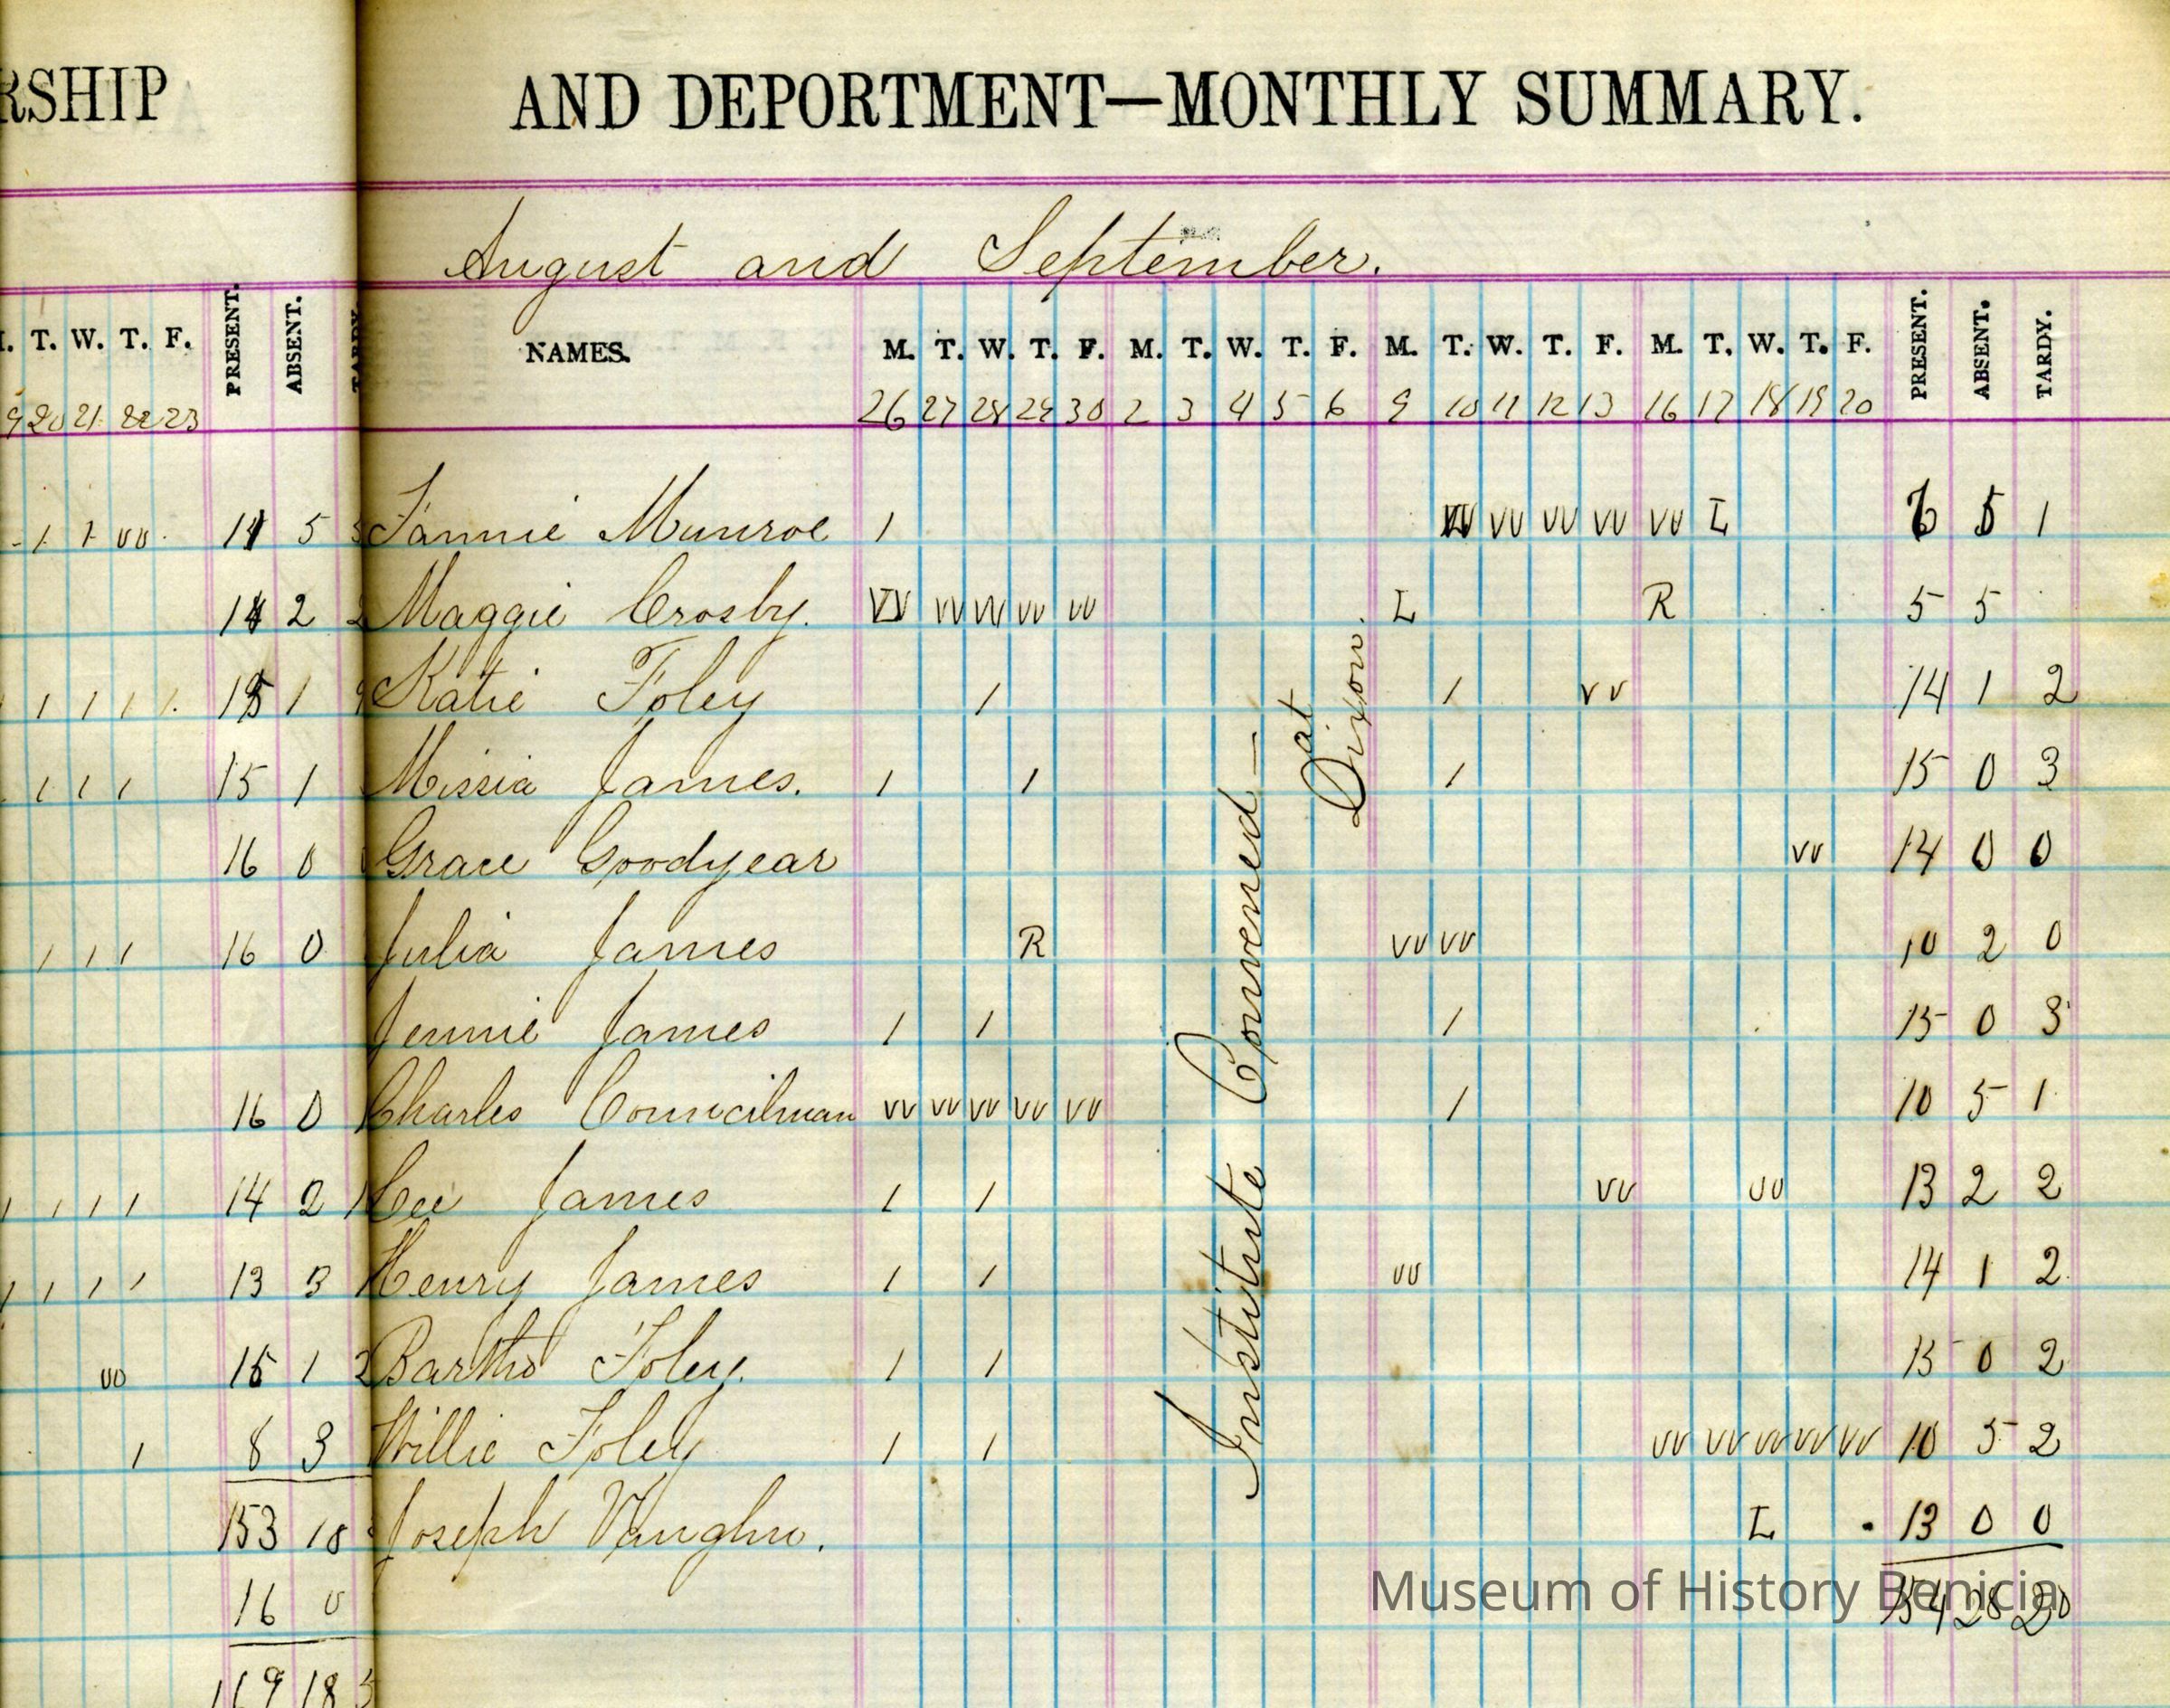 RSHIP AND DEPORTMENT—MONTHLY SUMMARY.
August and September.
T. W. T. F. PRESENT. ABSENT. TARDY. NAMES. M. T. W. T. F. M. T. W. T. F. M. T. W. T. F. M. T. W. T. F. PRESENT. ABSENT. TARDY.
9 20 21 22 23 26 27 28 29 30 2 3 4 5 6 9 10 11 12 13 16 17 18 19 20
1 1 vv 5 Fannie Munroe 1 vv vv vv vv vv L 6 5 1
14 2 2 Maggie Crosby. vv vv vv vv vv L R 5 5
1 1 1 1 1 15 1 Katie Foley 1 1 vv 14 1 2
1 1 1 15 1 Missia James. 1 1 1 15 0 3
16 0 Grace Goodyear vv 14 0 0
1 1 1 16 0 Julia James R vv vv 10 2 0
Jennie James 1 1 1 15 0 3
16 0 Charles Councilman vv vv vv vv vv 1 10 5 1
1 1 1 1 14 2 1 Cee James 1 1 vv vv 13 2 2
1 1 1 1 13 3 Henry James 1 1 vv 14 1 2
vv 15 1 2 Bartho Foley. 1 1 15 0 2
1 8 3 Willie Foley 1 1 vv vv vv vv vv 10 5 2
153 18 Joseph Vaughn. L 13 0 0
16 0 154 28 20
169 18
Institute Convened —
at
Dixon.
Museum of History Benicia